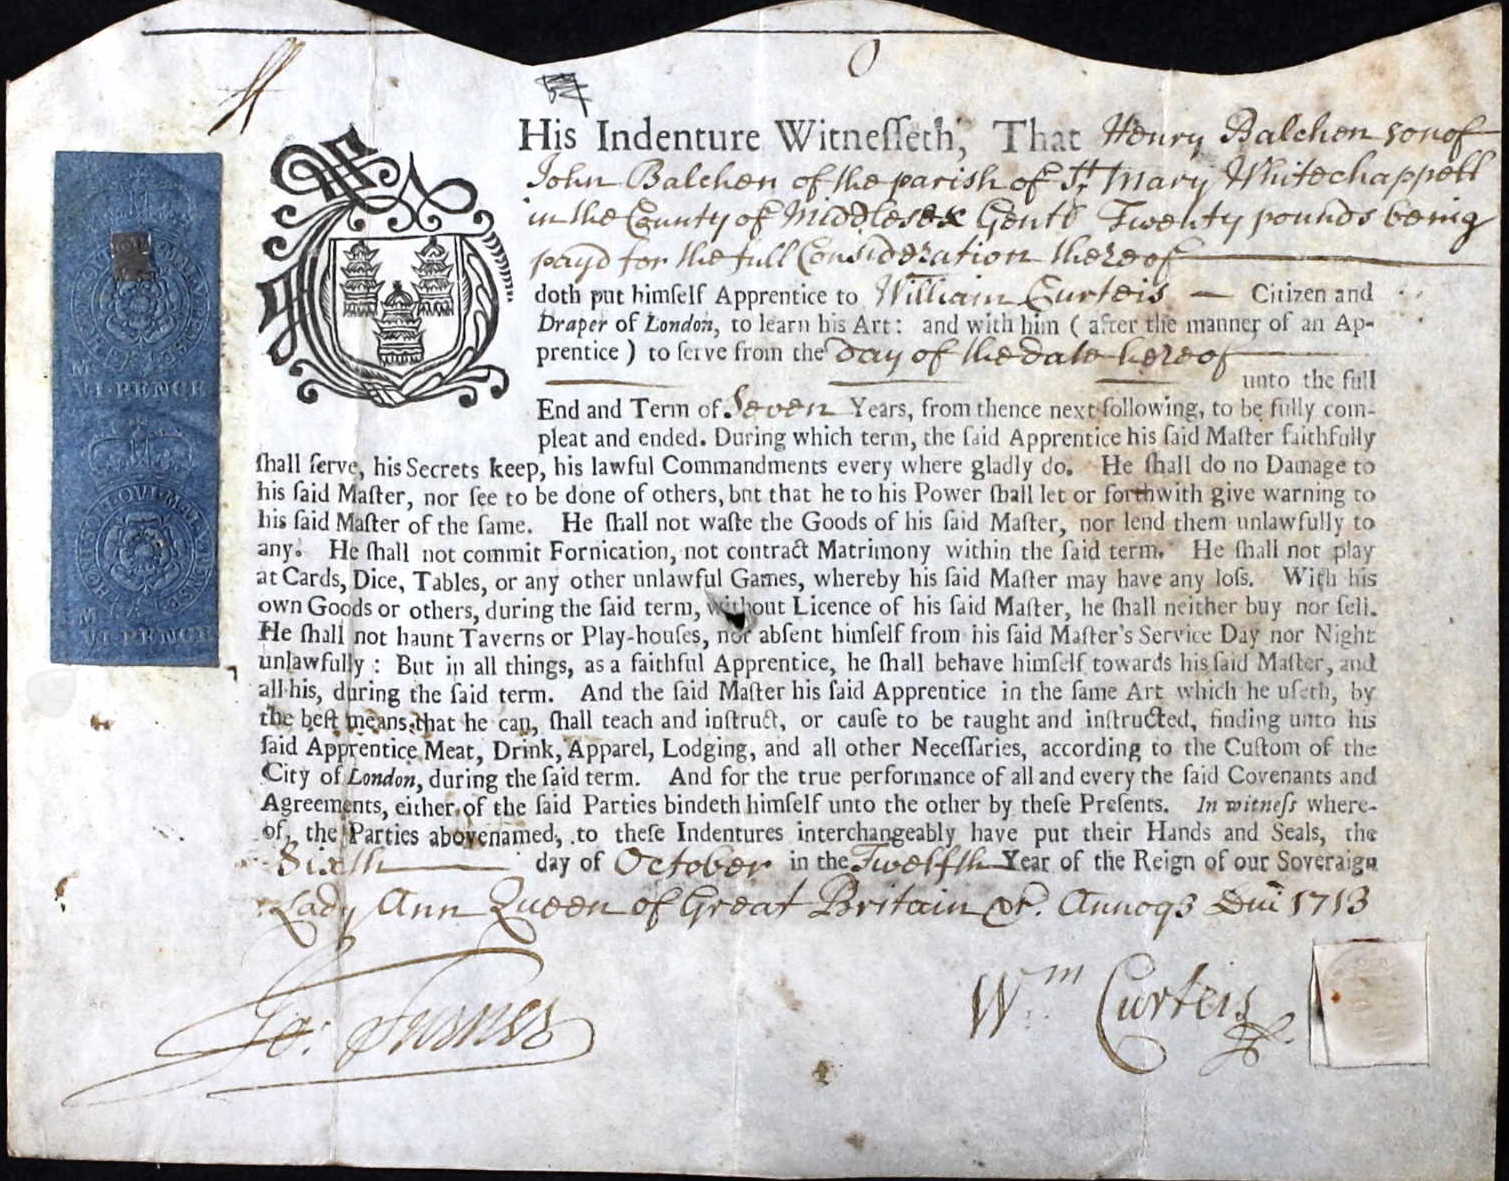 His Indenture Witneſſeth, That Henry Balchen son of
John Balchen of the parish of St. Mary Whitechappell
in the County of Middlesex Gentl Twenty pounds being
payd for the full Consideration thereof
doth put himſelf Apprentice to William Curteis — Citizen and
Draper of London, to learn his Art: and with him ( after the manner of an Ap-
prentice ) to ſerve from the day of the date hereof
unto the full
End and Term of Seven Years, from thence next following, to be fully com-
pleat and ended. During which term, the ſaid Apprentice his ſaid Maſter faithfully
ſhall ſerve, his Secrets keep, his lawful Commandments every where gladly do. He ſhall do no Damage to
his ſaid Maſter, nor ſee to be done of others, bnt that he to his Power ſhall let or forthwith give warning to
his ſaid Maſter of the ſame. He ſhall not waſte the Goods of his ſaid Maſter, nor lend them unlawfully to
any. He ſhall not commit Fornication, not contract Matrimony within the ſaid term. He ſhall not play
at Cards, Dice, Tables, or any other unlawful Games, whereby his ſaid Maſter may have any loſs. With his
own Goods or others, during the ſaid term, without Licence of his ſaid Maſter, he ſhall neither buy nor ſell.
He ſhall not haunt Taverns or Play-houſes, nor abſent himſelf from his ſaid Maſter's Service Day nor Night
unlawfully : But in all things, as a faithful Apprentice, he ſhall behave himſelf towards his ſaid Maſter, and
all his, during the ſaid term. And the ſaid Maſter his ſaid Apprentice in the ſame Art which he uſeth, by
the beſt means that he can, ſhall teach and inſtruct, or cauſe to be taught and inſtructed, finding unto his
ſaid Apprentice Meat, Drink, Apparel, Lodging, and all other Neceſſaries, according to the Cuſtom of the
City of London, during the ſaid term. And for the true performance of all and every the ſaid Covenants and
Agreements, either of the ſaid Parties bindeth himſelf unto the other by theſe Preſents. In witneſs where-
of, the Parties abovenamed, to theſe Indentures interchangeably have put their Hands and Seals, the
Sixth day of October in the Twelfth Year of the Reign of our Soveraign
Lady Ann Queen of Great Britain &c. Annoq3 Dni 1713
Wm Curteis
VI·PENCE
VI·PENCE